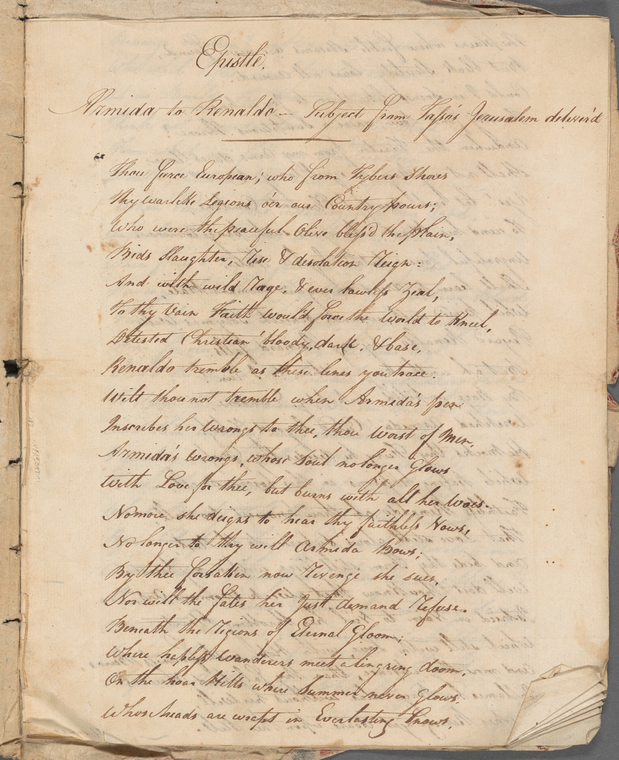 Epistle.
Armida to Renaldo — Subject from Tasso's Jerusalem deliver'd
Thou fierce European; who from Tybers Shores
Thy warlike Legions o'er our Country pours;
Who were the peaceful Olive bless'd the plain,
Bids slaughter, Rise & desolation Reign:
And with wild Rage, & ever lawless Zeal,
To thy Vain Faith would force the World to Kneel,
Detested Christian! bloody, dark, & base,
Renaldo tremble as these lines you trace:
Wilt thou not tremble when Armida's pen
Inscribes her wrongs to thee, thou Worst of Men,
Armida's wrongs, whose soul no longer Glows
With Love for thee, but burns with all her Woes.
No more she deigns to hear thy faithless Vows,
No longer to thy will Armida bows:
By thee forsaken now Revenge she sues.
Nor will the Fates her just demand Refuse.
Beneath the Regions of Eternal Gloom:
Where hapless wanderers meet a ling'ring doom,
On the hoar Hills where Summer never Glows.
Whose heads are wrapt in Everlasting Snows.